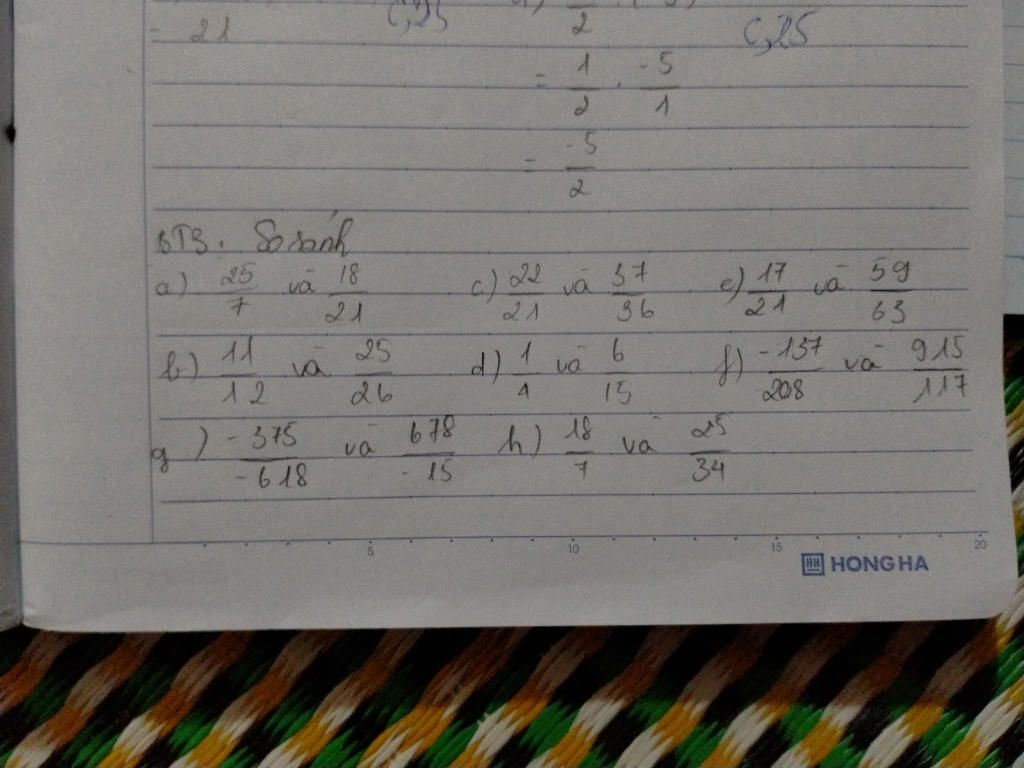 = 21 2
= 1/2 . -5/1
= -5/2
BT3. So sánh
a) 25/7 và 18/21 c) 22/21 và 37/36 e) 17/21 và 59/63
b) 11/12 và 25/26 d) 1/4 và 6/15 f) -157/208 và 915/117
g) -375/-618 và 678/-15 h) 18/7 và 25/34
5 10 15 20
HH HONG HA